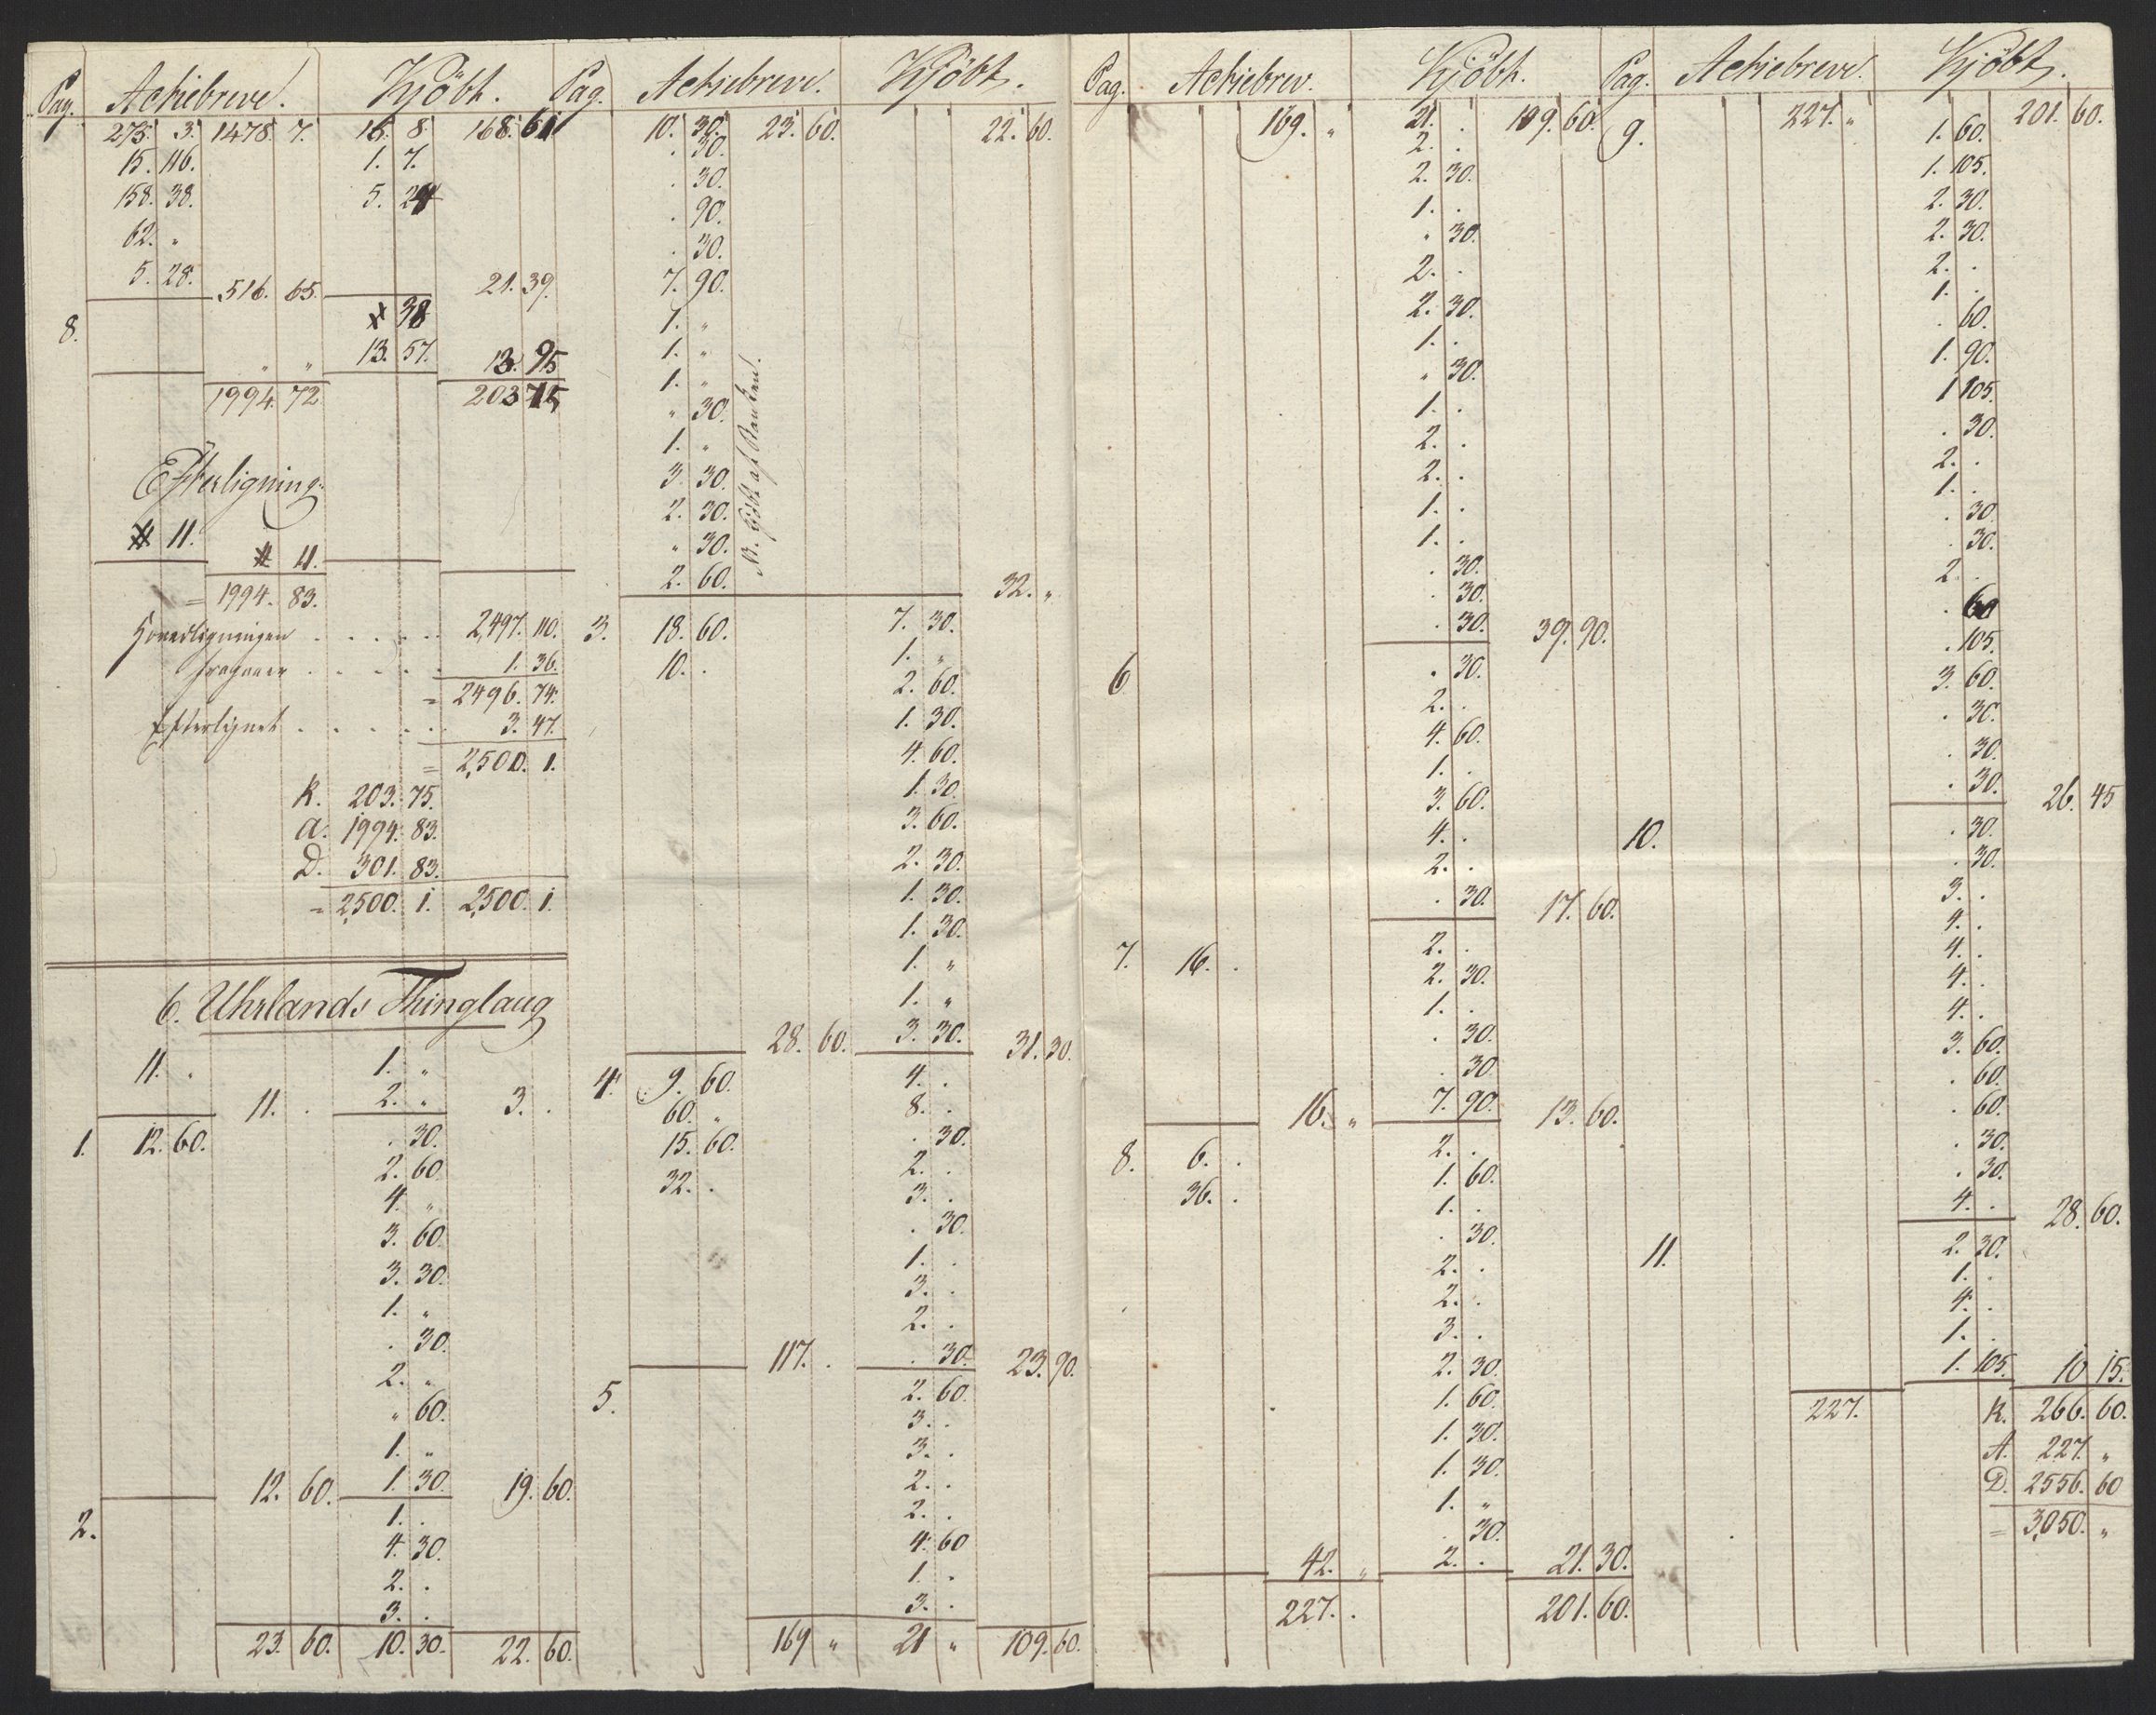 Pag. Actiebreve. Kjöbt.
7 275. 3. 1478. 7. 15. 8. 168. 61
15. 116. 1. 7.
158. 38. 5. 24
62. "
5. 28. 516. 65. 21. 39.
8. 38
" " 13. 57. 13. 95
1994. 72. 203 75
Efterligning.
11.
11.
= 1994. 83.
2,497. 110.
1. 36.
= 2496. 74.
Efterlignet . . . . . . 3. 47.
= 2,500. 1.
K. 203. 75.
A. 1994. 83.
D. 301. 83.
= 2,500. 1. 2,500. 1.
6. Uhrlands Thinglaug
11. . 1. "
11. . 2. " 3. .
1. 12. 60. . 30.
2. 60.
4. "
3. 60.
3. 30.
1. "
. 30.
2. "
" 60.
1. "
12. 60. 1. 30. 19. 60.
2. 1. .
4. 30.
2. .
3. .
23. 60. 10. 30. 22. 60.
Pag. Actiebreve. Kjöbt.
10. 30. 23. 60. 22. 60.
. 30.
. 30.
. 90.
. 30.
7. 90.
1. "
1. "
1. "
" 30.
1. "
3. 30.
2. 30.
" 30.
2. 60. 32. "
3. 18. 60. 7. 30.
10. . 1. "
2. 60.
1. 30.
4. 60.
1. 30.
3. 60.
2. 30.
1. 30.
1. 30.
1. "
1. "
28. 60. 3. 30. 31. 30.
4. 9. 60. 4. .
60. " 8. .
15. 60. . 30.
32. . 2. .
3. .
. 30.
1. .
3. .
2. .
117. . . 30. 23. 90.
5. 2. 60.
3. .
3. .
2. .
2. .
4. 60
1. .
3. .
169 " 21 " 109. 60.
Pag. Actiebrev. Kjöbt.
169. " 21. . 109. 60.
2. .
2. 30.
1. .
" 30.
2. .
2. 30.
1. .
" 30.
1. .
2. .
2. .
1. .
1. .
. 30.
. 30.
. 30. 39. 90.
6 . 30.
2. .
4. 60.
1. .
3. 60.
4. .
2. .
. 30. 17. 60.
7. 16. . 2. .
2. 30.
1. .
. 30.
. 30
16. " 7. 90. 13. 60.
8. 6. . 2. .
36. . 1. 60.
1. .
. 30.
2. .
2. .
3. .
2. 30.
1. 60.
1. 30.
1. 30.
1. "
. 30.
42. " 2. . 21. 30.
227. . 201. 60.
Pag. Actiebreve. Kjöbt.
9. 227. " 1. 60. 201. 60.
1. 105.
2. 30.
2. 30.
2. .
1. .
. 60.
1. 90.
1 105.
. 30.
2. .
1. .
. 30
. 30.
2 .
. 60
. 105.
3. 60.
. 30.
. 30.
. 30. 26. 45
10. . 30.
. 30.
3. .
4. .
4. .
4. .
4. .
3. 60.
. 60.
. 60.
. 30.
. 30.
4. . 28. 60.
11. 2. 30.
1. .
4. .
1. .
1. 105. 10 15.
227. K. 266. 60.
A. 227. "
D. 2556. 60
= 3,050. "